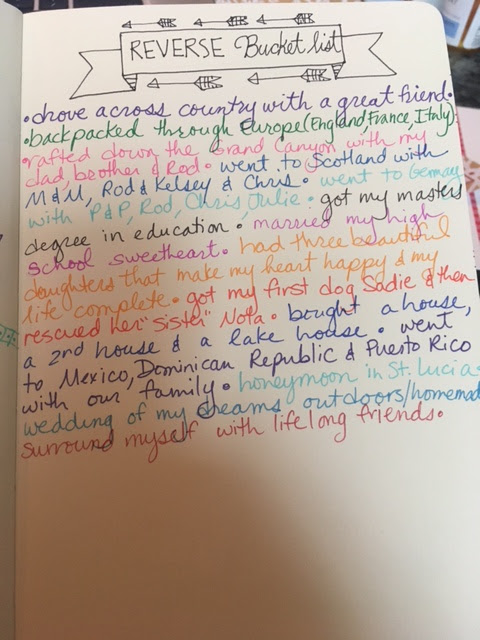 REVERSE Bucket list
• drove across country with a great friend •
• backpacked through Europe (England, France, Italy)
• rafted down the Grand Canyon with my
dad, brother & Rod • went to Scotland with
M & M, Rod & Kelsey & Chris • went to Germany
with P & P, Rod, Chris, Julie • got my masters
degree in education • married my high
school sweetheart • had three beautiful
daughters that make my heart happy & my
life complete • got my first dog Sadie & then
rescued her "sister" Nola • bought a house,
a 2nd house & a lake house • went
to Mexico, Dominican Republic & Puerto Rico
with our family • honeymoon in St. Lucia •
wedding of my dreams outdoors/homemade
surround myself with lifelong friends •